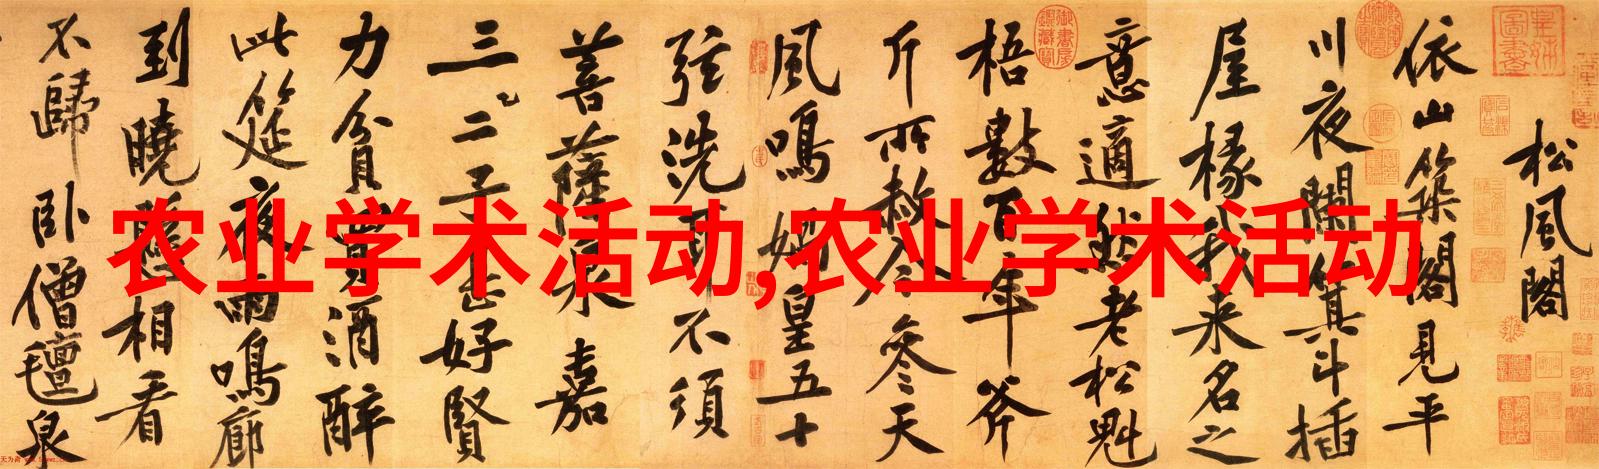 农业学术活动,农业学术活动
松風閣
依山築閣見平
川夜闌箕斗插
屋椽我来名之
意適然老松魁
梧數百年斧
斤所赦今參天
風鳴媧皇五十
弦洗耳不須
菩薩泉嘉
三二子甚好賢
力貧買酒醉
此筵夜雨鳴廊
到曉懸相看
不歸卧僧氈泉